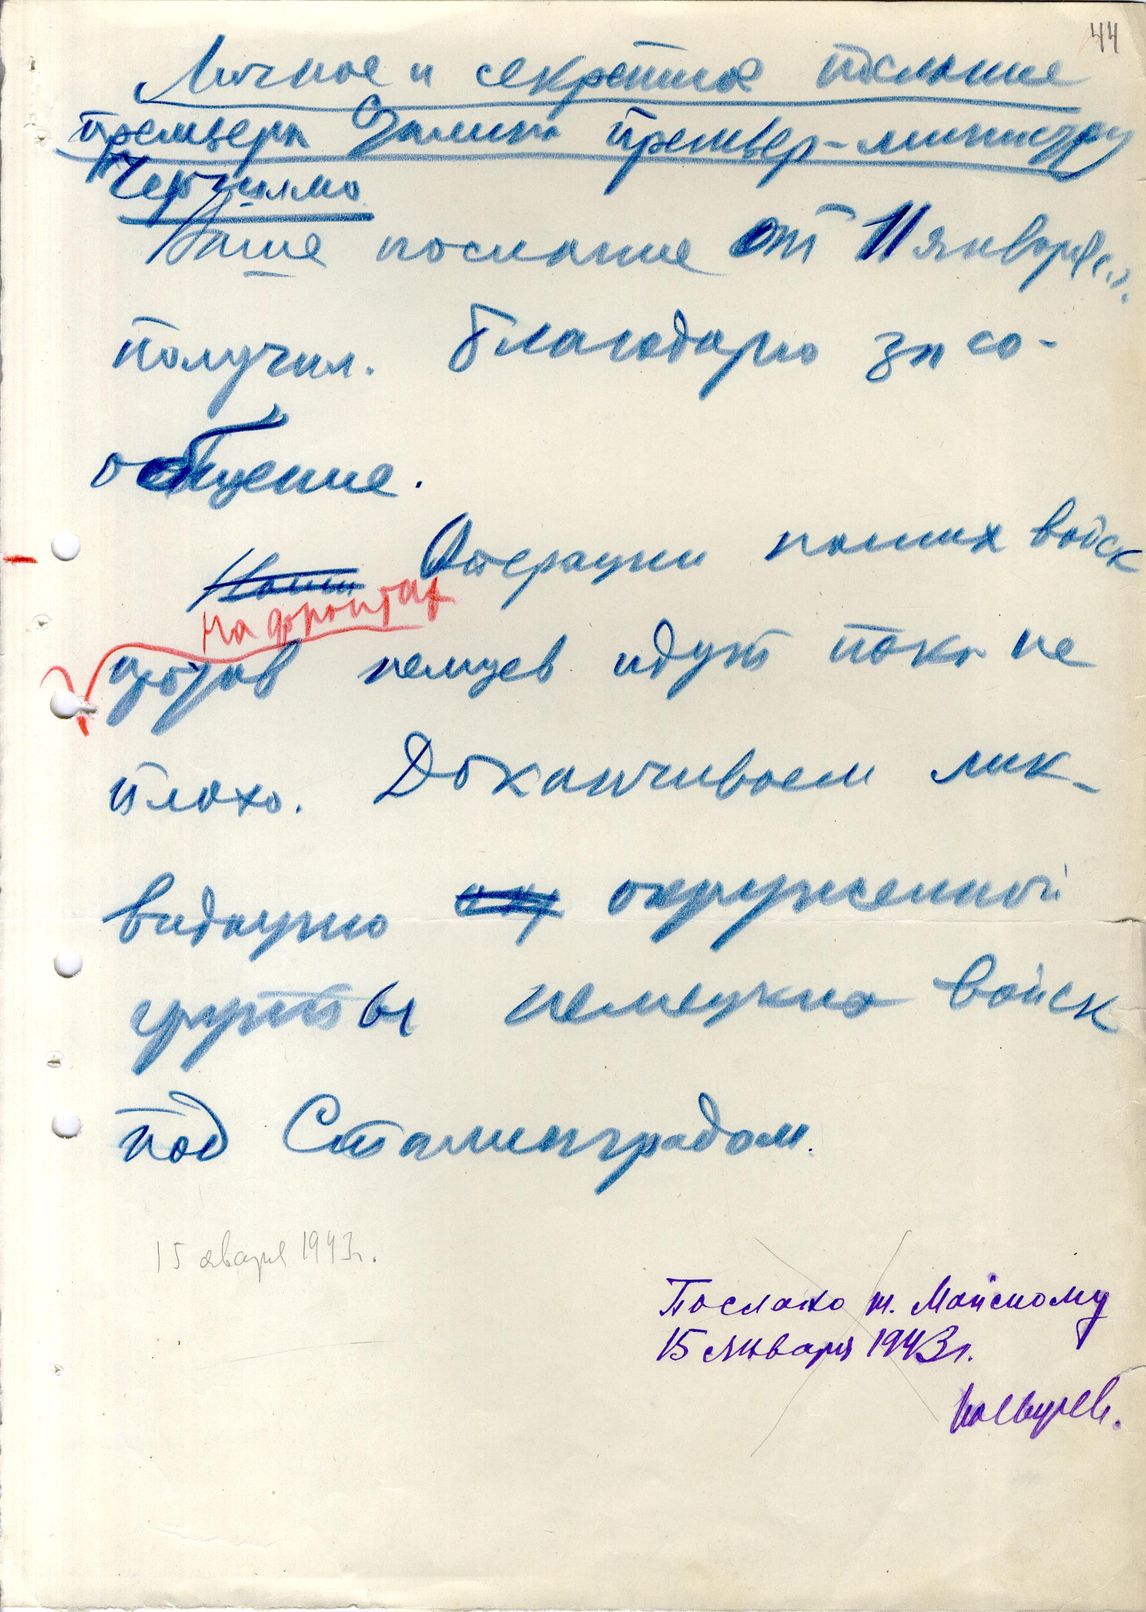 44
Личное и секретное послание
премьера Сталина премьер-министру
Черчиллю
Ваше послание от 11 января с.г.
получил. Благодарю за со-
общение.
Наши Операции наших войск
на фронтах
против немцев идут пока не
плохо. Доканчиваем лик-
видацию окруженной
группы немецких войск
под Сталинградом.
15 января 1943 г.
Послано т. Майскому
15 января 1943 г.